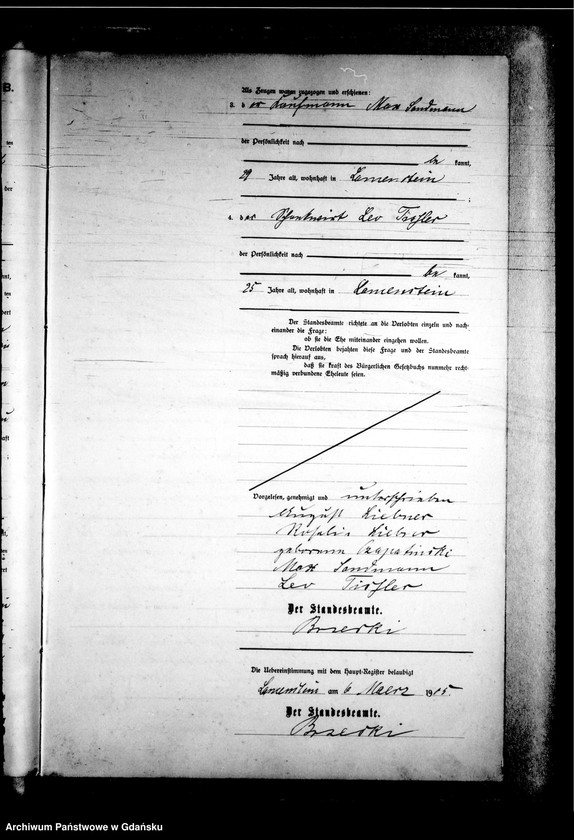 B.
Als Zeugen waren zugezogen und erschienen:
3. der Kaufmann Max Sandmann
der Persönlichkeit nach
be kannt,
29 Jahre alt, wohnhaft in Lamenstein
;
4. der Schankwirt Leo Tischler
der Persönlichkeit nach
be kannt,
25 Jahre alt, wohnhaft in Lamenstein
Der Standesbeamte richtete an die Verlobten einzeln und nach-
einander die Frage:
ob sie die Ehe miteinander eingehen wollen.
Die Verlobten bejahten diese Frage und der Standesbeamte
sprach hierauf aus,
daß sie kraft des Bürgerlichen Gesetzbuchs nunmehr recht-
mäßig verbundene Eheleute seien.
Vorgelesen, genehmigt und unterschrieben
August Liebner
Rosalie Liebner
geborene
Max Sandmann
Leo Tischler
Der Standesbeamte.
Brzeski
Die Uebereinstimmung mit dem Haupt-Register beglaubigt
Lamenstein am 6 Maerz 1905.
Der Standesbeamte.
Brzeski
Archiwum Państwowe w Gdańsku